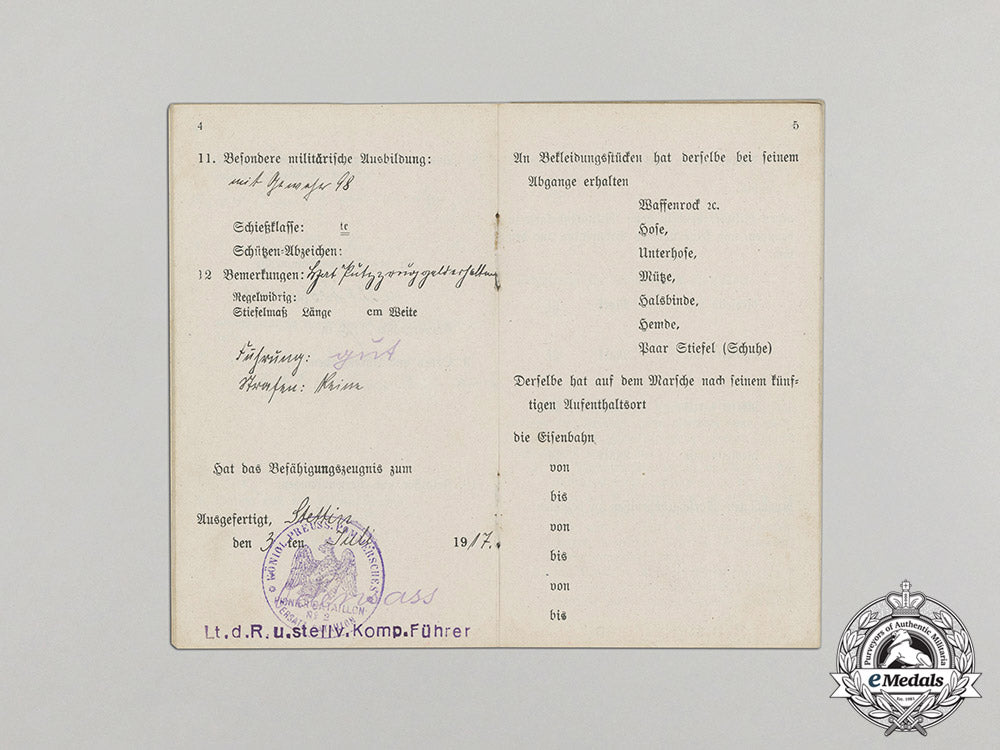 4
11. Besondere militärische Ausbildung:
mit Gewehr 98
Schießklasse: te
Schützen-Abzeichen:
12 Bemerkungen: Hat Putzzeuggelderhalten
Regelwidrig:
Stiefelmaß Länge cm Weite
Führung: gut
Strafen: Keine
Hat das Befähigungszeugnis zum
Ausgefertigt, Stettin
den 3ten Juli 1917.
KÖNIGL. PREUSS. POMMERSCHES
PIONIER-BATAILLON
Nr 2
ERSATZ
Lt.d.R.u.stellv.Komp.Führer
5
An Bekleidungsstücken hat derselbe bei seinem
Abgange erhalten
Waffenrock ꝛc.
Hose,
Unterhose,
Mütze,
Halsbinde,
Hemde,
Paar Stiefel (Schuhe)
Derselbe hat auf dem Marsche nach seinem künf-
tigen Aufenthaltsort
die Eisenbahn
von
bis
von
bis
von
bis
Purveyors of Authentic Militaria
eMedals
Est. 1985